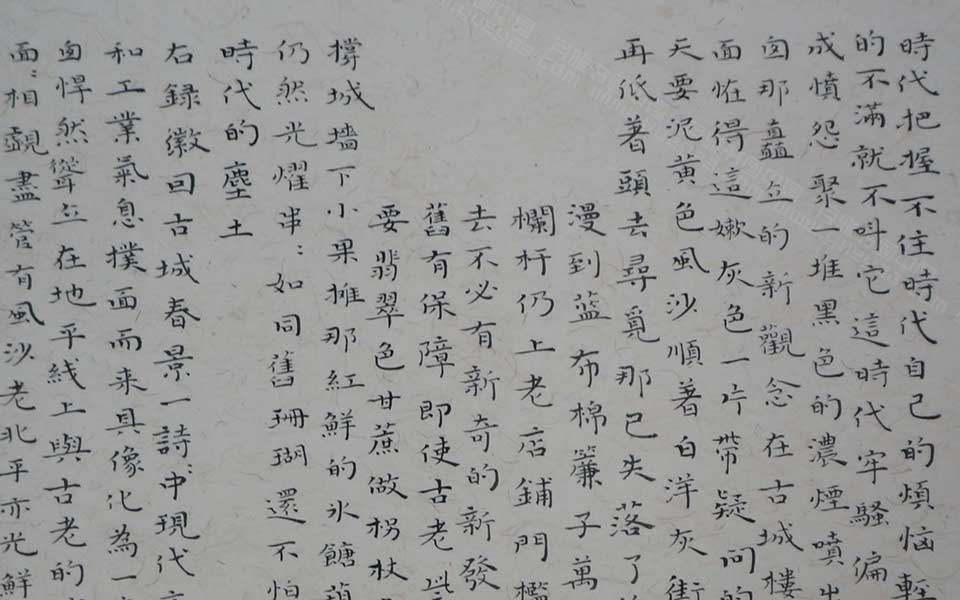 時代把握不住時代自己的煩惱輕
的不滿就不叫它這時代牢騷偏
成憤怨聚一堆黑色的濃煙噴出
囪那矗立的新觀念在古城樓
面恠得這嫩灰色一片帶疑問的
天要泥黃色風沙順著白洋灰街
再低著頭去尋覓那已失落了
漫到藍布棉簾子萬
欄杆仍上老店鋪門檻
去不必有新奇的新發
舊有保障即使古老些
要翡翠色甘蔗做拐杖
撐城墙下小果攤那紅鮮的氷糖葫
仍然光耀串:如同舊珊瑚還不怕
時代的塵土
右錄徽因古城春景一詩中現代
和工業氣息撲面而来具像化為一
囪悍然聳立在地平线上與古老的
面:相覷盡管有風沙老北平亦光鮮